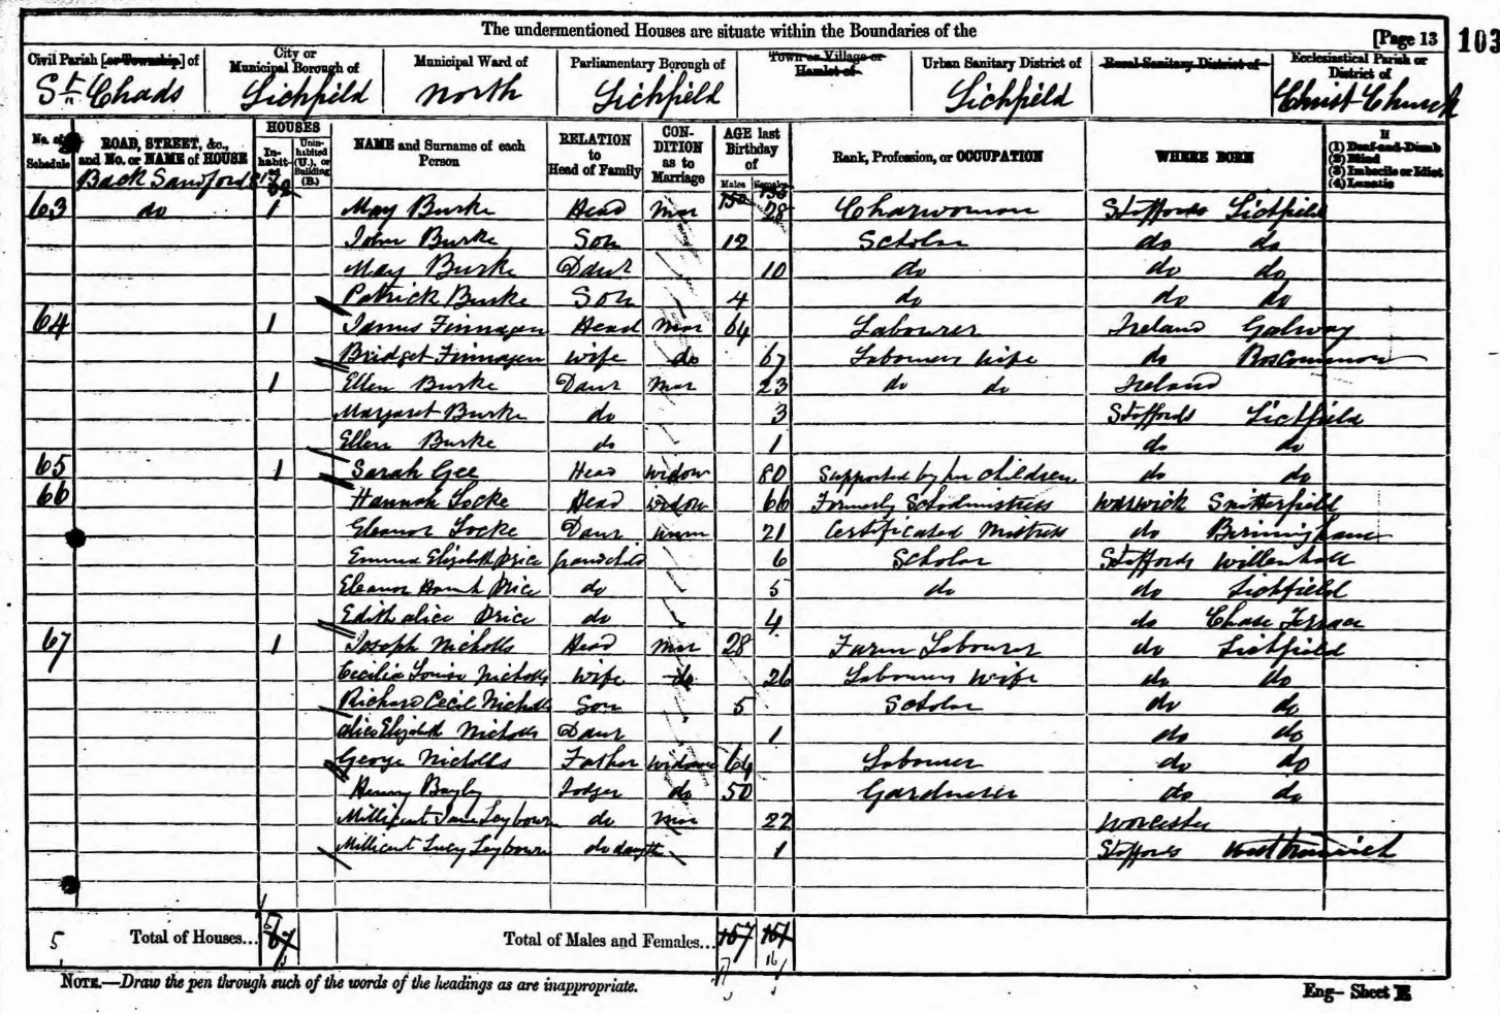 The undermentioned Houses are situate within the Boundaries of the
[Page 13
103
Civil Parish [or Township] of
St Chads
City or Municipal Borough of
Lichfield
Municipal Ward of
North
Parliamentary Borough of
Lichfield
Town or Village or Hamlet of
Urban Sanitary District of
Lichfield
Rural Sanitary District of
Ecclesiastical Parish or District of
Christ Church
No. of Schedule
ROAD, STREET, &c., and No. or NAME of HOUSE
HOUSES
In-habit-
Unin-habited (U.), or Building (B.)
NAME and Surname of each Person
RELATION to Head of Family
CON-DITION as to Marriage
AGE last Birthday of
Males
Females
Rank, Profession, or OCCUPATION
WHERE BORN
(1) Deaf-and-Dumb
(2) Blind
(3) Imbecile or Idiot
(4) Lunatic
Back Sandford
63 do 1 May Burke Head Mar 28 Charwoman Staffords Lichfield
John Burke Son 12 Scholar do do
May Burke Daur 10 do do do
Patrick Burke Son 4 do do do
64 1 James Finnagen Head Mar 64 Labourer Ireland Galway
Bridget Finnagen Wife do 67 Labourers Wife do Roscommon
1 Ellen Burke Daur Mar 23 do do Ireland
Margaret Burke do 3 Staffords Lichfield
Ellen Burke do 1 do do
65 1 Sarah Gee Head Widow 80 Supported by her children do do
66 Hannah Locke Head Widow 66 Formerly Schoolmistress Warwick Snitterfield
Eleanor Locke Daur Unm 21 Certificated Mistress do Birmingham
Emma Elizabeth Price Grandchild 6 Scholar Staffords Willenhall
Eleanor Price do 5 do do Lichfield
Edith alice Price do 4 do Chase Terrace
67 1 Joseph Nicholls Head Mar 28 Farm Labourer do Lichfield
Cecilia Louisa Nicholls Wife do 26 Labourers Wife do do
Richard Cecil Nicholls Son 5 Scholar do do
Alice Elizabeth Nicholls Daur 1 do do
George Nicholls Father Widower 64 Labourer do do
Henry Bayley Lodger do 50 Gardnerer do do
Millicent Jane Leybourn do Mar 22 Worcester
Millicent Lucy Leybourn do daughtr 1 Staffords
5 Total of Houses...
Total of Males and Females...
NOTE.—Draw the pen through such of the words of the headings as are inappropriate.
Eng— Sheet E